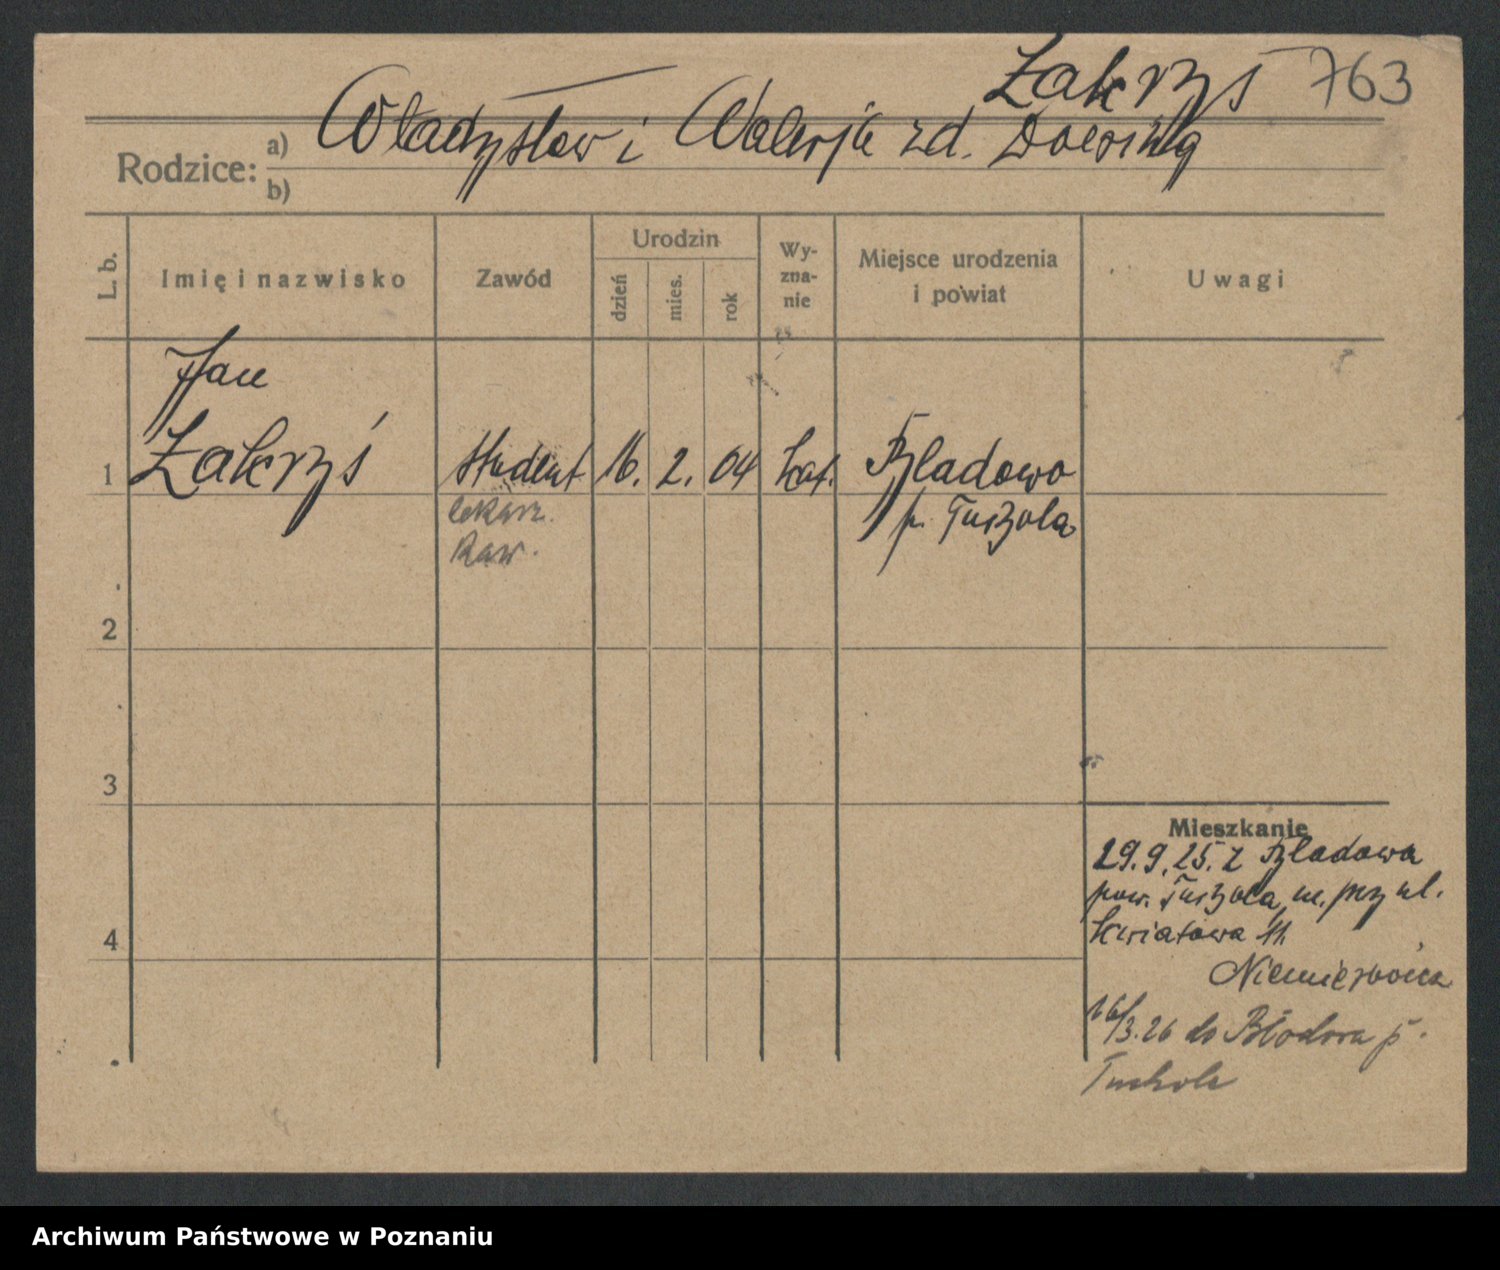 Zakrzś 763
Rodzice:
a) Władysław i Walerja zd.
b)
L. b.
Imię i nazwisko
Zawód
Urodzin
dzień
mies.
rok
Wy-
zna-
nie
Miejsce urodzenia
i powiat
Uwagi
Jan
1 Zakrzś student 16. 2. 04 kat. Bladowo
lekarz. p. Tuchola
kaw.
2
3
4
Mieszkanie
29.9.25. z Bladowa
pow. Tuchola, m. przy ul.
Kwiatowa 11.
16/3.26 do Błodowa p.
Tuchola
Archiwum Państwowe w Poznaniu